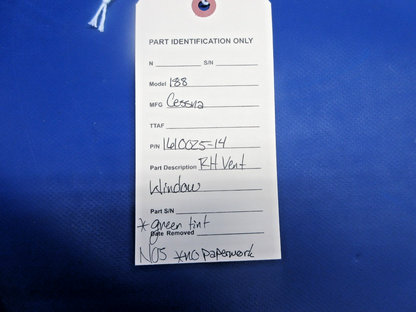 PART IDENTIFICATION ONLY
N S/N
Model 188
MFG Cessna
TTAF
P/N 1610025-14
Part Description RH Vent
Window
Part S/N
* green tint
Date Removed
NOS *no paperwork